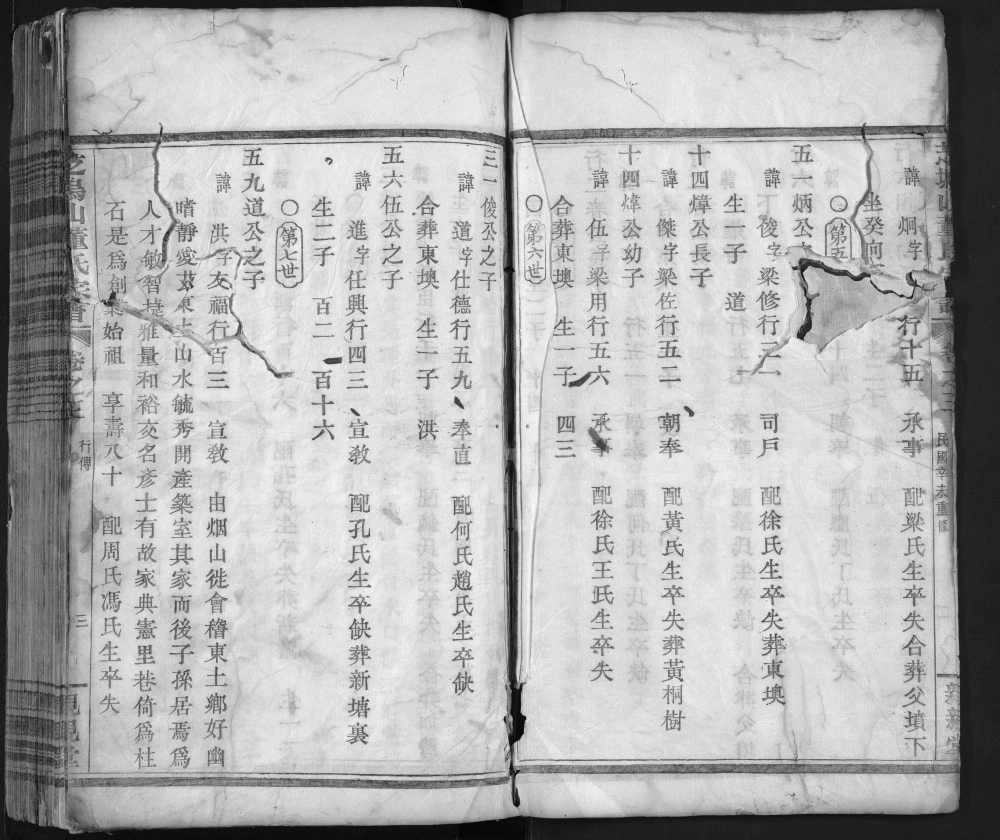 諱 炯字 行十五 承事 配梁氏生卒失合葬父墳下
坐癸向
○第五
五一炳公
諱 俊字梁修行三一 司戶 配徐氏生卒失葬東墺
生一子 道
十四煒公長子
諱 傑字梁佐行五二 朝奉 配黃氏生卒失葬黃桐樹
十四煒公幼子
諱 伍字梁用行五六 承事 配徐氏王氏生卒失
合葬東墺 生一子 四三
○第六世
民國辛未重修
三一俊公之子
諱 道字仕德行五九 奉直 配何氏趙氏生卒缺
合葬東墺 生一子 洪
五六伍公之子
諱 進字仕興行四三 宣教 配孔氏生卒缺葬新塘裏
生二子 百二 百十六
○第七世
五九道公之子
諱 洪字友福行百三 宣教 由烟山徙會稽東土鄉好幽
嗜靜愛茲東土山水毓秀開產築室其家而後子孫居焉爲
人才敏智捷雅量和裕交名彥士有故家典憲里巷倚爲柱
石是爲創業始祖 享壽八十 配周氏馮氏生卒失
董氏宗譜 卷之三 行傳 三